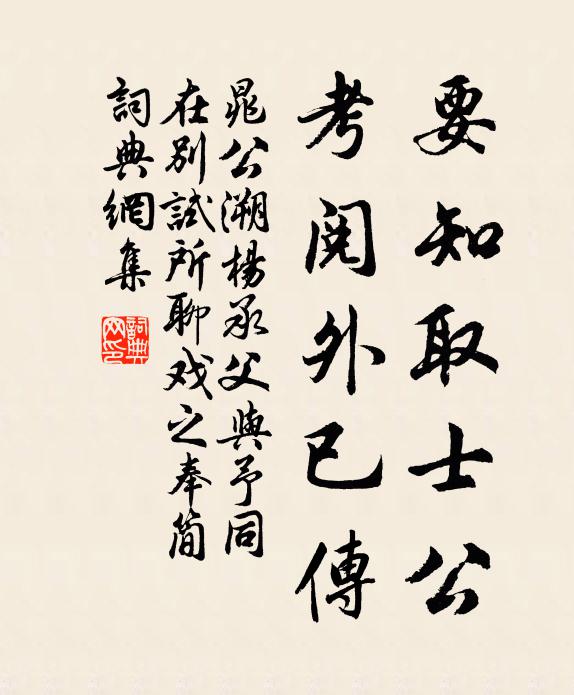 要知取士公
考閱外已傳
晁公溯楊承父與予同
在別試所聊戏之奉简
詞典網集
詞典
网印